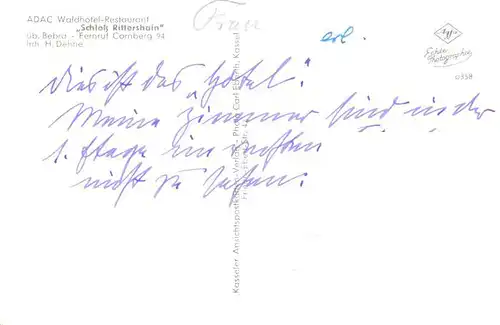 ADAC Waldhotel-Restaurant
„Schloß Rittershain"
üb. Bebra - Fernruf Cornberg 94
Inh. H. Dehne
Frau
erl.
Agfa
Echte Photographie
0358
Dies ist das „Hotel".
Meine Zimmer sind in der
1. Etage im
nicht zu sehen.
Kasseler Ansichtspostkarten-Verlag, Photo-Carl Eberth, Kassel